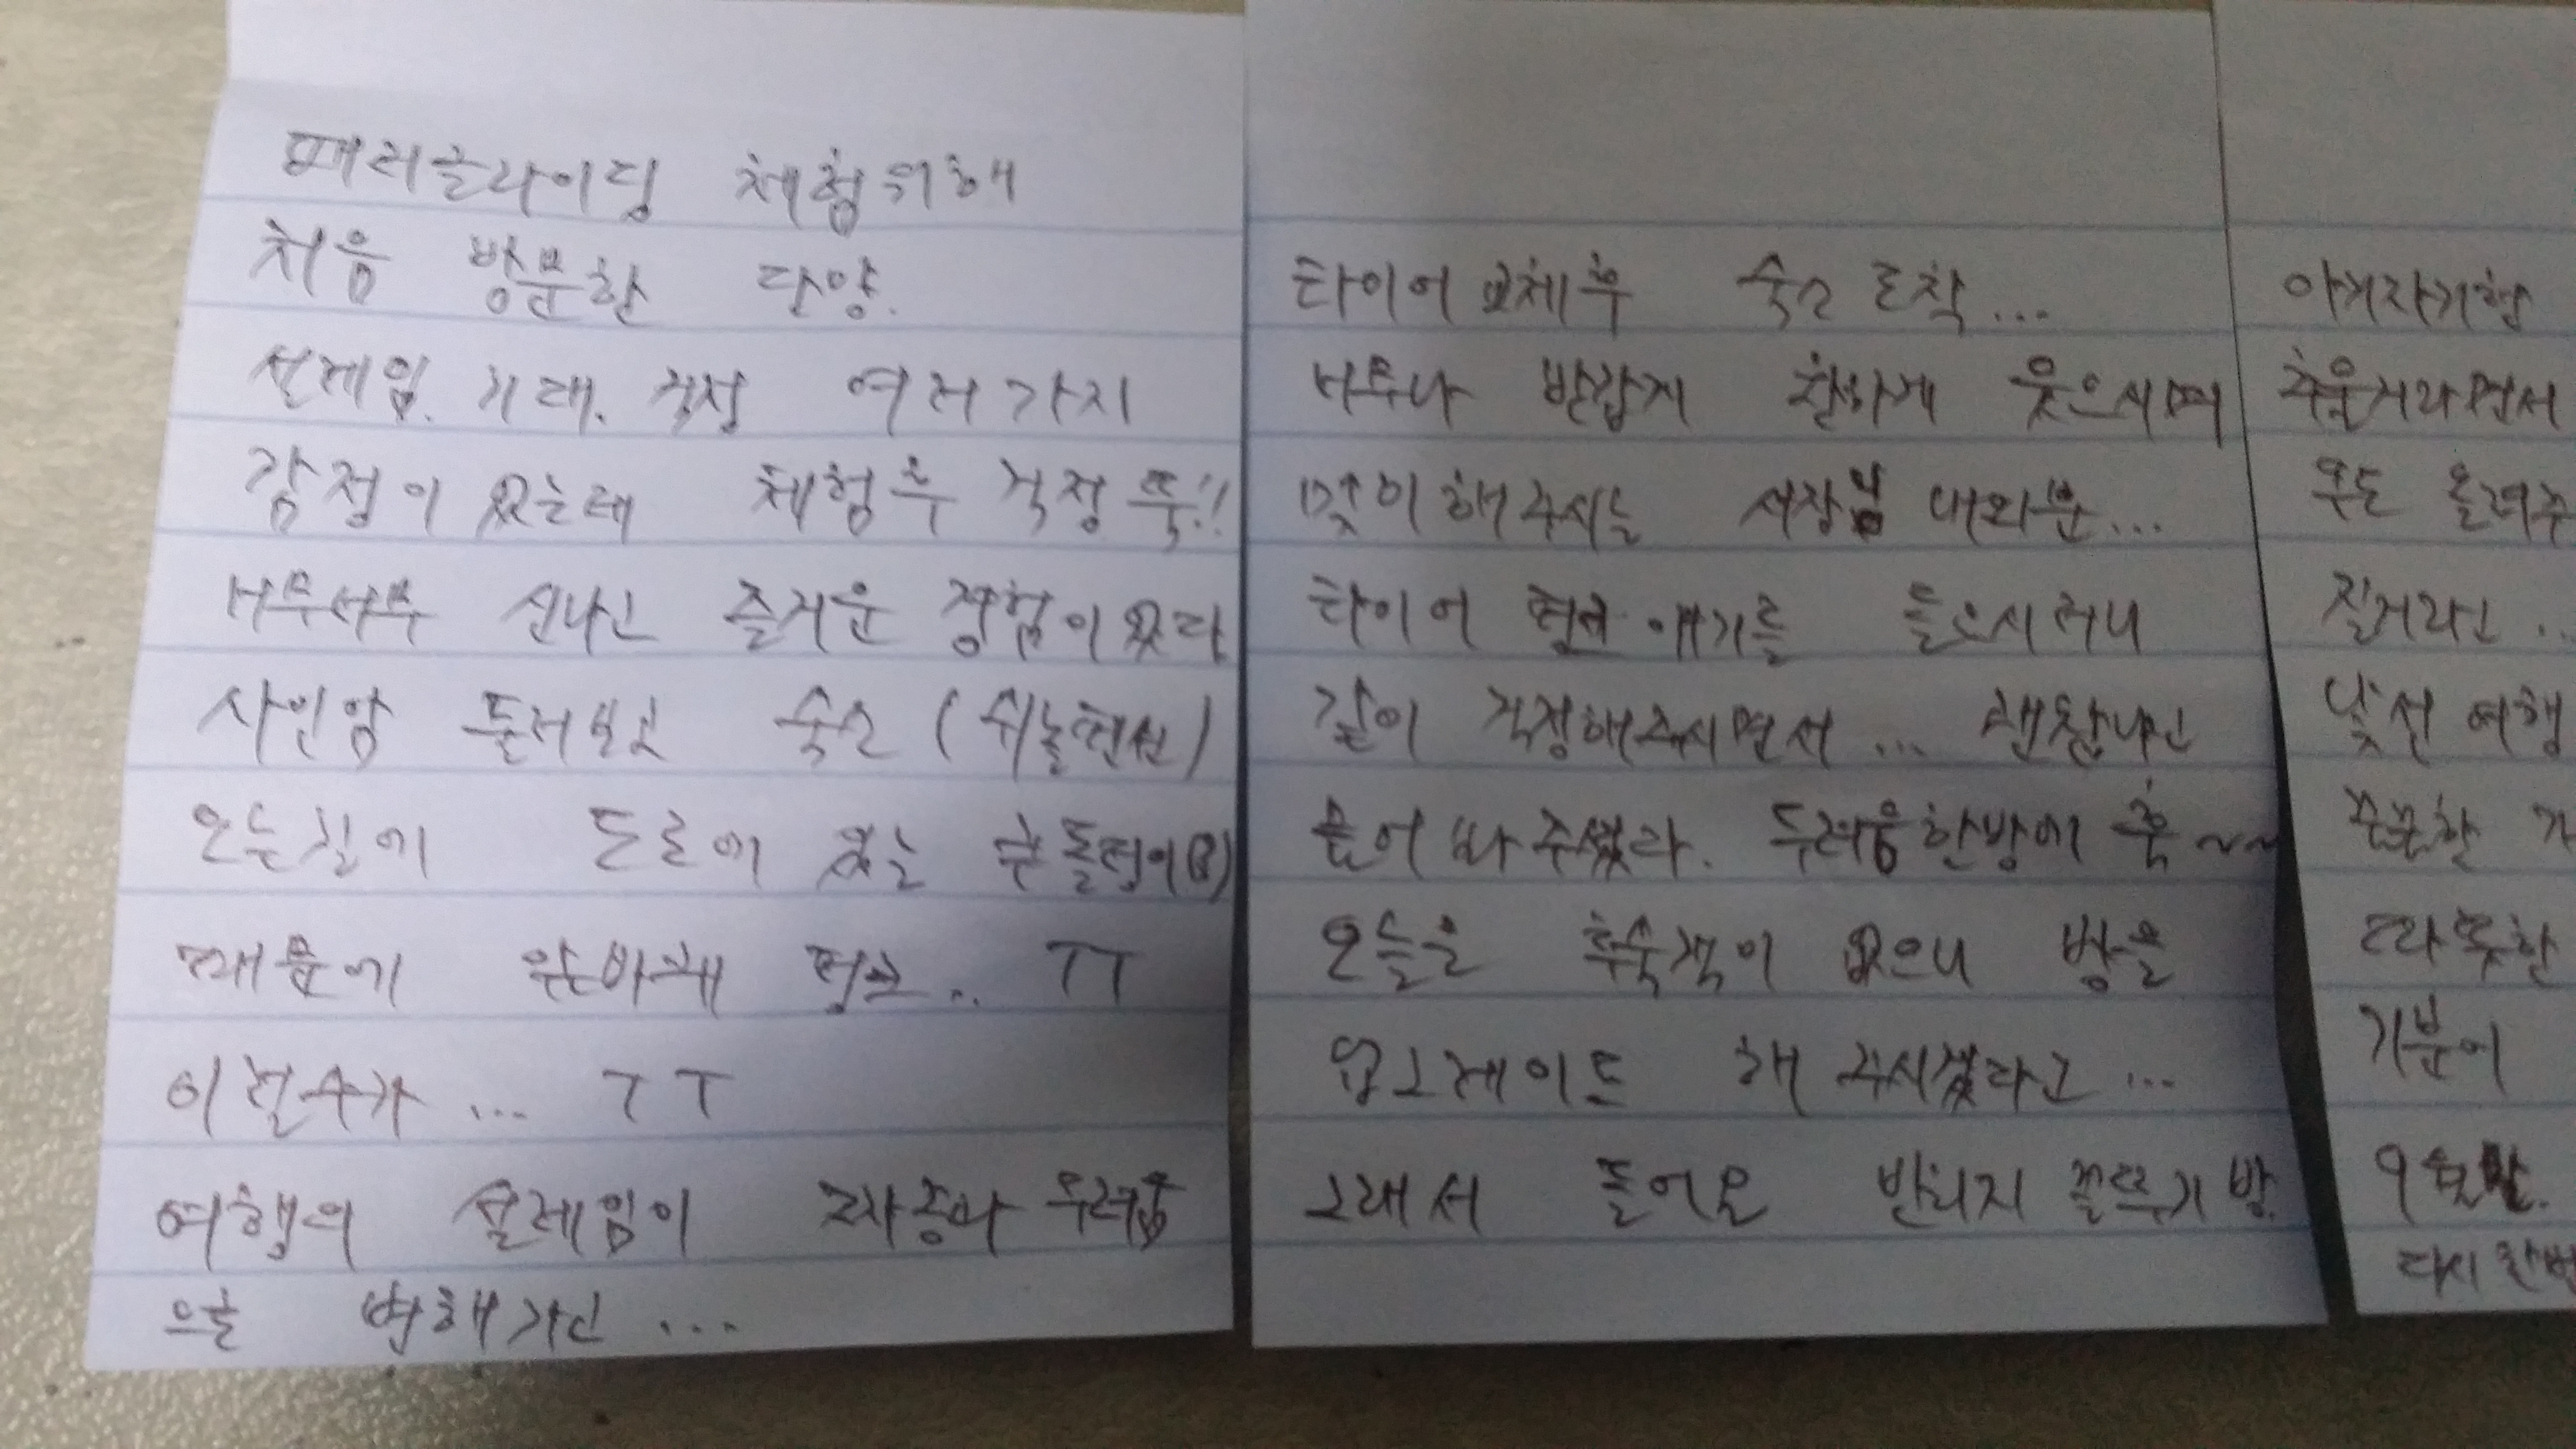 패러글라이딩 체험위해
처음 방문한 단양.
설레임. 기대. 걱정 여러가지
감정이 있는데 체험후 걱정 뚝!!
너무너무 신나고 즐거운 경험이였다
사인암 둘러보고 숙소 (하늘펜션)
오는길에 도로에 있는 큰 돌덩이(?)
때문에 왼바퀴 펑크.. ㅜㅜ
이럴수가 ... ㅜㅜ
여행의 설레임이 짜증과 두려움
으로 변해가고 ...
타이어 교체후 숙소 도착...
너무나 반갑게 환하게 웃으시며
맞이해주시는 사장님 내외분...
타이어 펑크 얘기를 들으시더니
같이 걱정해주시면서 ... 괜찮냐고
물어봐 주셨다. 두려움한방에 훅~~
오늘은 투숙객이 없으니 방을
업그레이드 해 주시겠다고 ...
그래서 들어온 반디지 꼴뚜기 방.
아기자기한
추울거라면서
온도 올려주
질거라고 ..
낯선 여행
꿉꿉한
따뜻한
기분이
9월말.
다시 한번